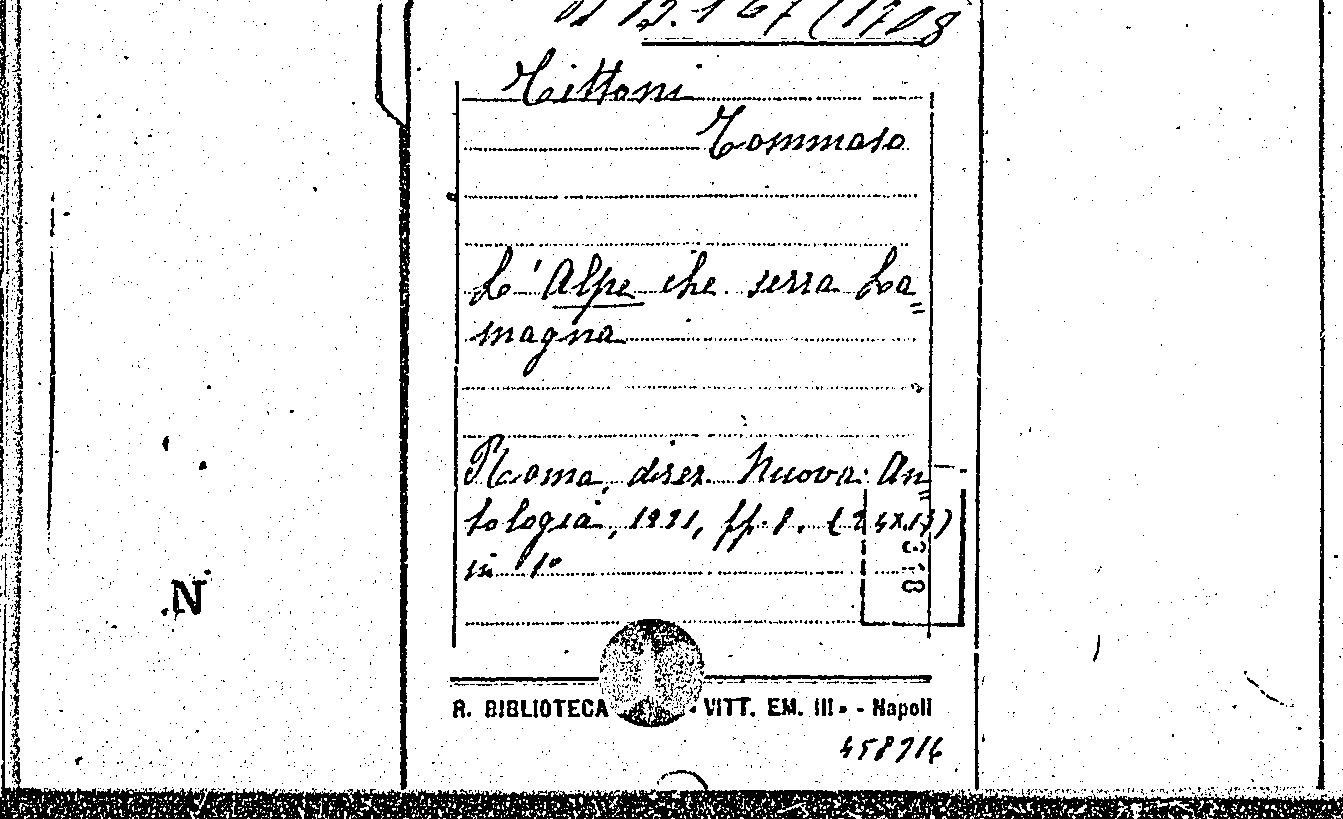 Tittoni
Tommaso
L'Alpe che serra La=
magna
Roma, direz. Nuova An=
tologia, 1921, pp. 8.
in 1°
N
R. BIBLIOTECA VITT. EM. III - Napoli
458716